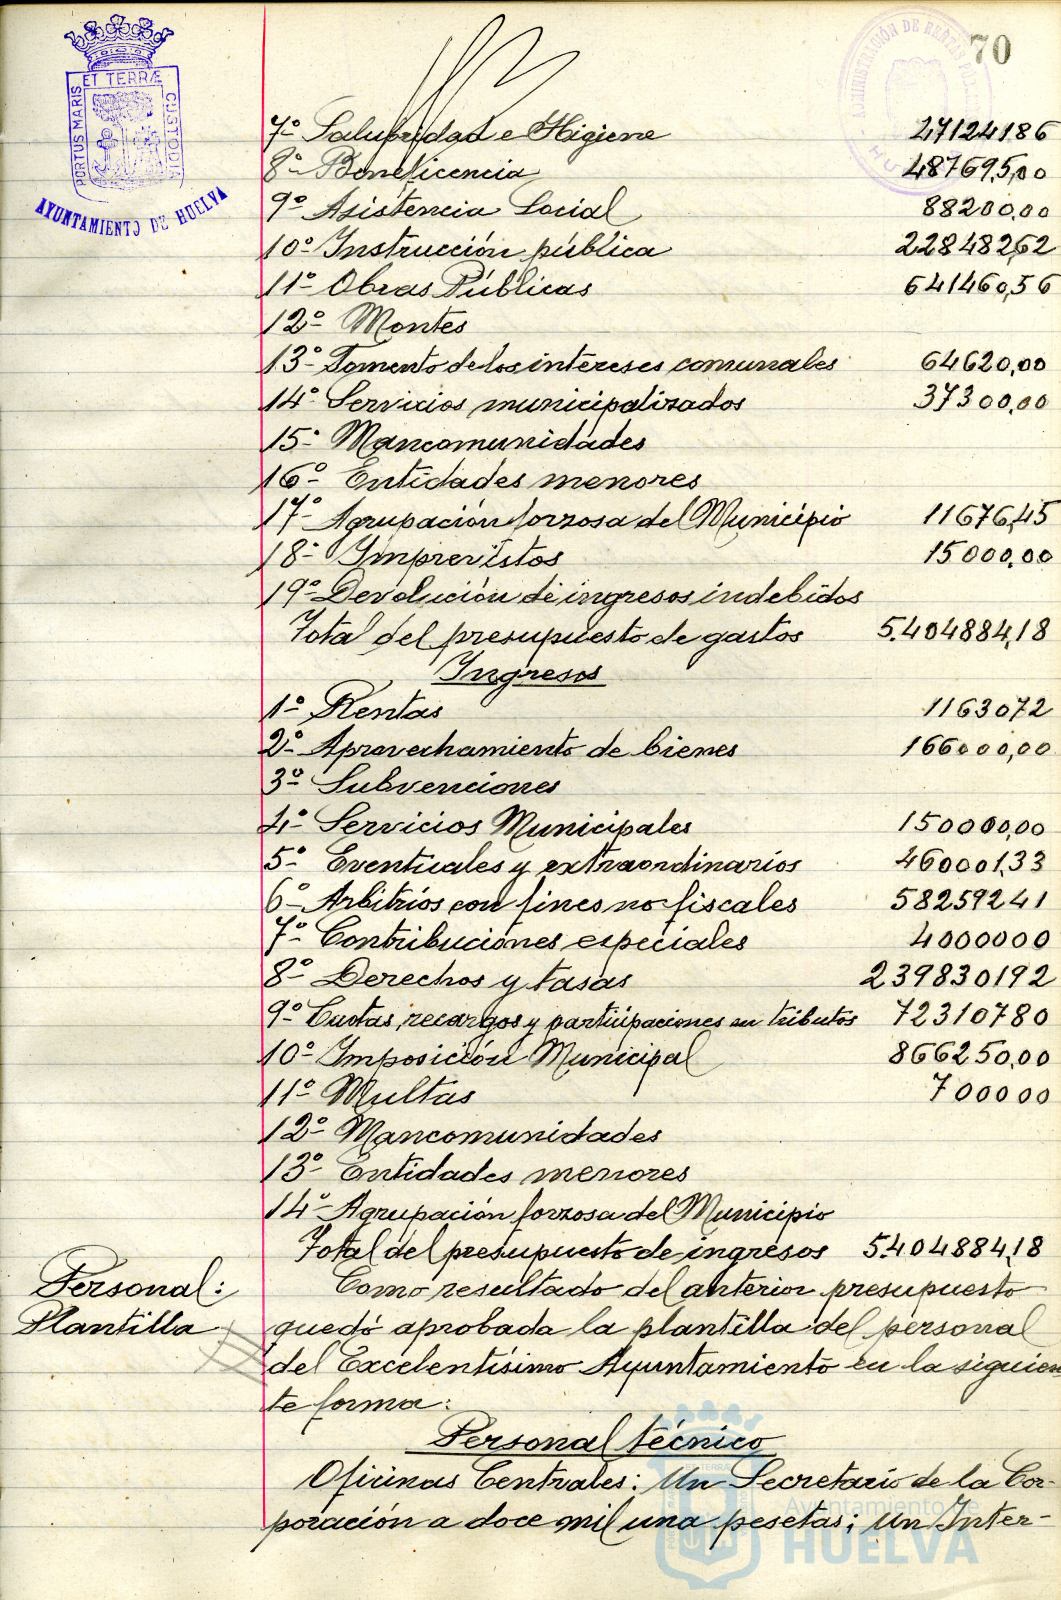 70
PORTUS MARIS ET TERRÆ CUSTODIA
AYUNTAMIENTO DE HUELVA
7º Salubridad e Higiene 27124186
8º Beneficencia 487695,00
9º Asistencia Social 88200,00
10º Instrucción pública 22848262
11º Obras Públicas 641460,56
12º Montes
13º Fomento de los intereses comunales 64620,00
14º Servicios municipalizados 37300,00
15º Mancomunidades
16º Entidades menores
17º Agrupación forzosa del Municipio 11676,45
18º Imprevistos 15000,00
19º Devolución de ingresos indebidos
Total del presupuesto de gastos 5.404884,18
Ingresos
1º Rentas 1163072
2º Aprovechamiento de bienes 166000,00
3º Subvenciones
4º Servicios Municipales 150000,00
5º Eventuales y extraordinarios 460001,33
6º Arbitrios con fines no fiscales 58259241
7º Contribuciones especiales 4000000
8º Derechos y tasas 239830192
9º Cuotas, recargos y participaciones en tributos 72310780
10º Imposición Municipal 866250,00
11º Multas 700000
12º Mancomunidades
13º Entidades menores
14º Agrupación forzosa del Municipio
Total del presupuesto de ingresos 5.404884,18
Personal:
Plantilla
Como resultado del anterior presupuesto
quedó aprobada la plantilla del personal
del Excelentísimo Ayuntamiento en la siguien
te forma:
Personal técnico
Oficinas Centrales: Un Secretario de la Cor-
poración a doce mil una pesetas; Un Inter-
Ayuntamiento de
HUELVA